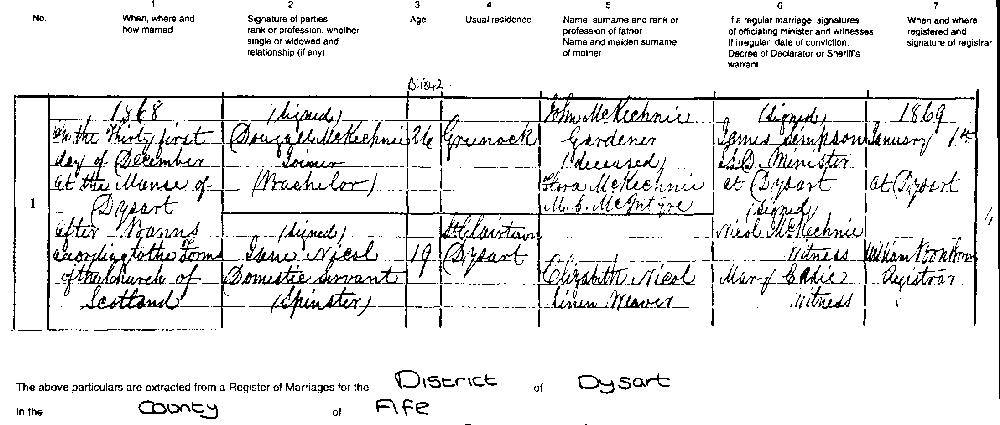 No.
1
When, where and
how married
2
Signature of parties
rank or profession, whether
single or widowed and
relationship (if any)
3
Age
4
Usual residence
5
Name, surname and rank or
profession of father
Name and maiden surname
of mother
6
If a regular marriage, signatures
of officiating minister and witnesses
If irregular, date of conviction,
Decree of Declarator or Sheriff's
warrant
7
When and where
registered and
signature of registrar
B.1842
1
1868
on the Thirty first
day of December
at the Manse of
Dysart
after Banns
according to the Forms
of the Church of
Scotland
(Signed)
Dougald McKechnie
Joiner
(Bachelor)
26
Greenock
John McKechnie
Gardener
(deceased)
Flora McKechnie
M.S. McIntyre
(Signed)
Jane Nicol
Domestic Servant
(Spinster)
19
St Clairtown
Dysart
Elizabeth Nicol
Linen Weaver
(Signed)
James Simpson
Minister
at Dysart
(Signed)
Neil McKechnie
Witness
Mary Eadie
Witness
1869
January 1st
at Dysart
William
Registrar
The above particulars are extracted from a Register of Marriages for the District of Dysart
in the County of Fife